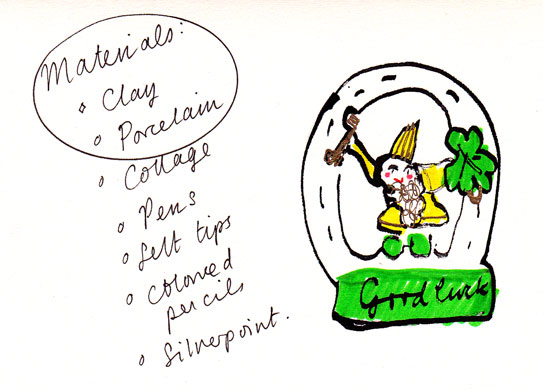 Materials:
Clay
Porcelain
Collage
Pens
felt tips
coloured
pencils
Silverpoint.
Good luck